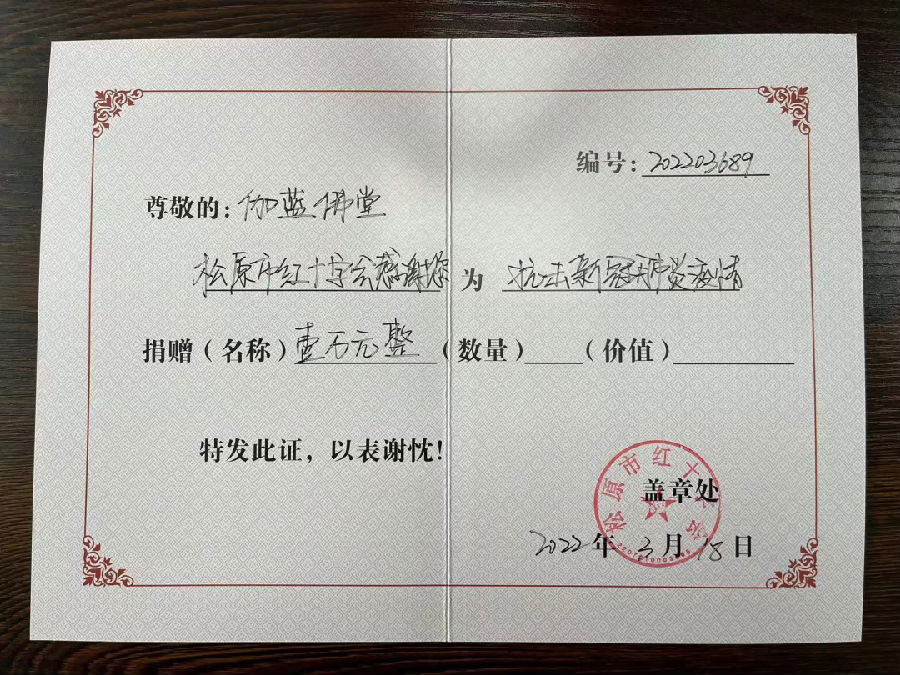 编号：202203689
尊敬的：伽蓝佛堂
松原市红十字会感谢您 为 抗击新冠肺炎疫情
捐赠（名称）壹万元整（数量）（价值）
特发此证，以表谢忱！
松原市红十字会
盖章处
2022年3月18日